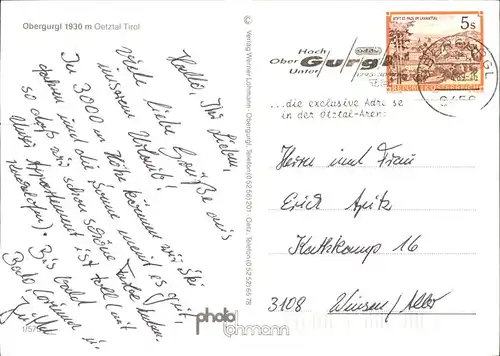 Obergurgl 1930 m Oetztal-Tirol
Hallo, Ihr Lieben,
Viele liebe Grüße aus
unserem Urlaub!
In 3000 m Höhe können wir Ski
fahren und die Sonne meint es gut,
so daß wir schon schöne Farbe haben.
Unser Appartement ist toll (mit
). Bis bald
Bodo, Corinna u.
© Verlag Werner Lohmann · Obergurgl, Telefon (0 52 56) 201 · Oetz, Telefon (0 52 52) 65 78
STIFT ST. PAUL IM LAVANTTAL
5s
REPUBLIK ÖSTERREICH
Hoch
Ober Gurgl
Unter
1793-30
OBERGURGL
6456
...die exclusive Adresse
in der Ötztal-Arena
Herrn und Frau
Erich Apitz
Kattekamp 16
3108 Winsen/Aller
photo lohmann